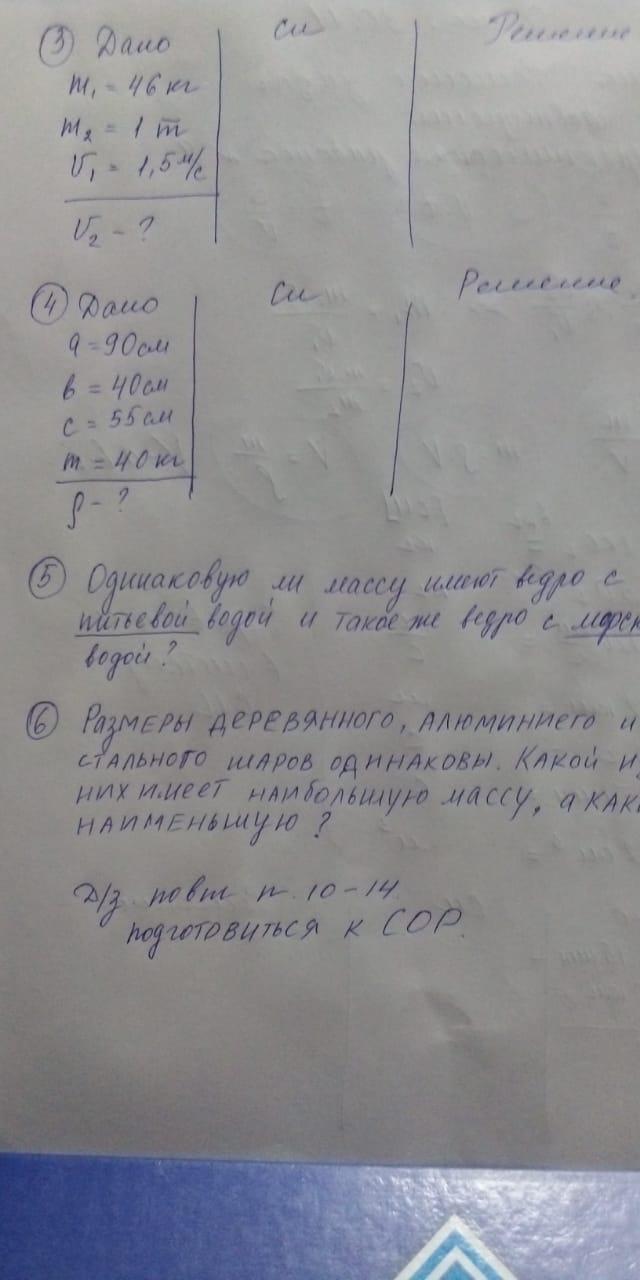 ③ Дано
Си
Решение
m₁ = 46 кг
m₂ = 1 т
υ₁ = 1,5 м/с
υ₂ - ?
④ Дано
Си
Решение.
a = 90 см
в = 40 см
c = 55 см
m = 40 кг
ρ - ?
⑤ Одинаковую ли массу имеют ведро с
питьевой водой и такое же ведро с
водой?
⑥ РАЗМЕРЫ ДЕРЕВЯННОГО, АЛЮМИНИЕГО И
СТАЛЬНОГО ШАРОВ ОДИНАКОВЫ. КАКОЙ
НИХ ИМЕЕТ НАИБОЛЬШУЮ МАССУ, А
НАИМЕНЬШУЮ?
Д/з повт п. 10-14
подготовиться к СОР.